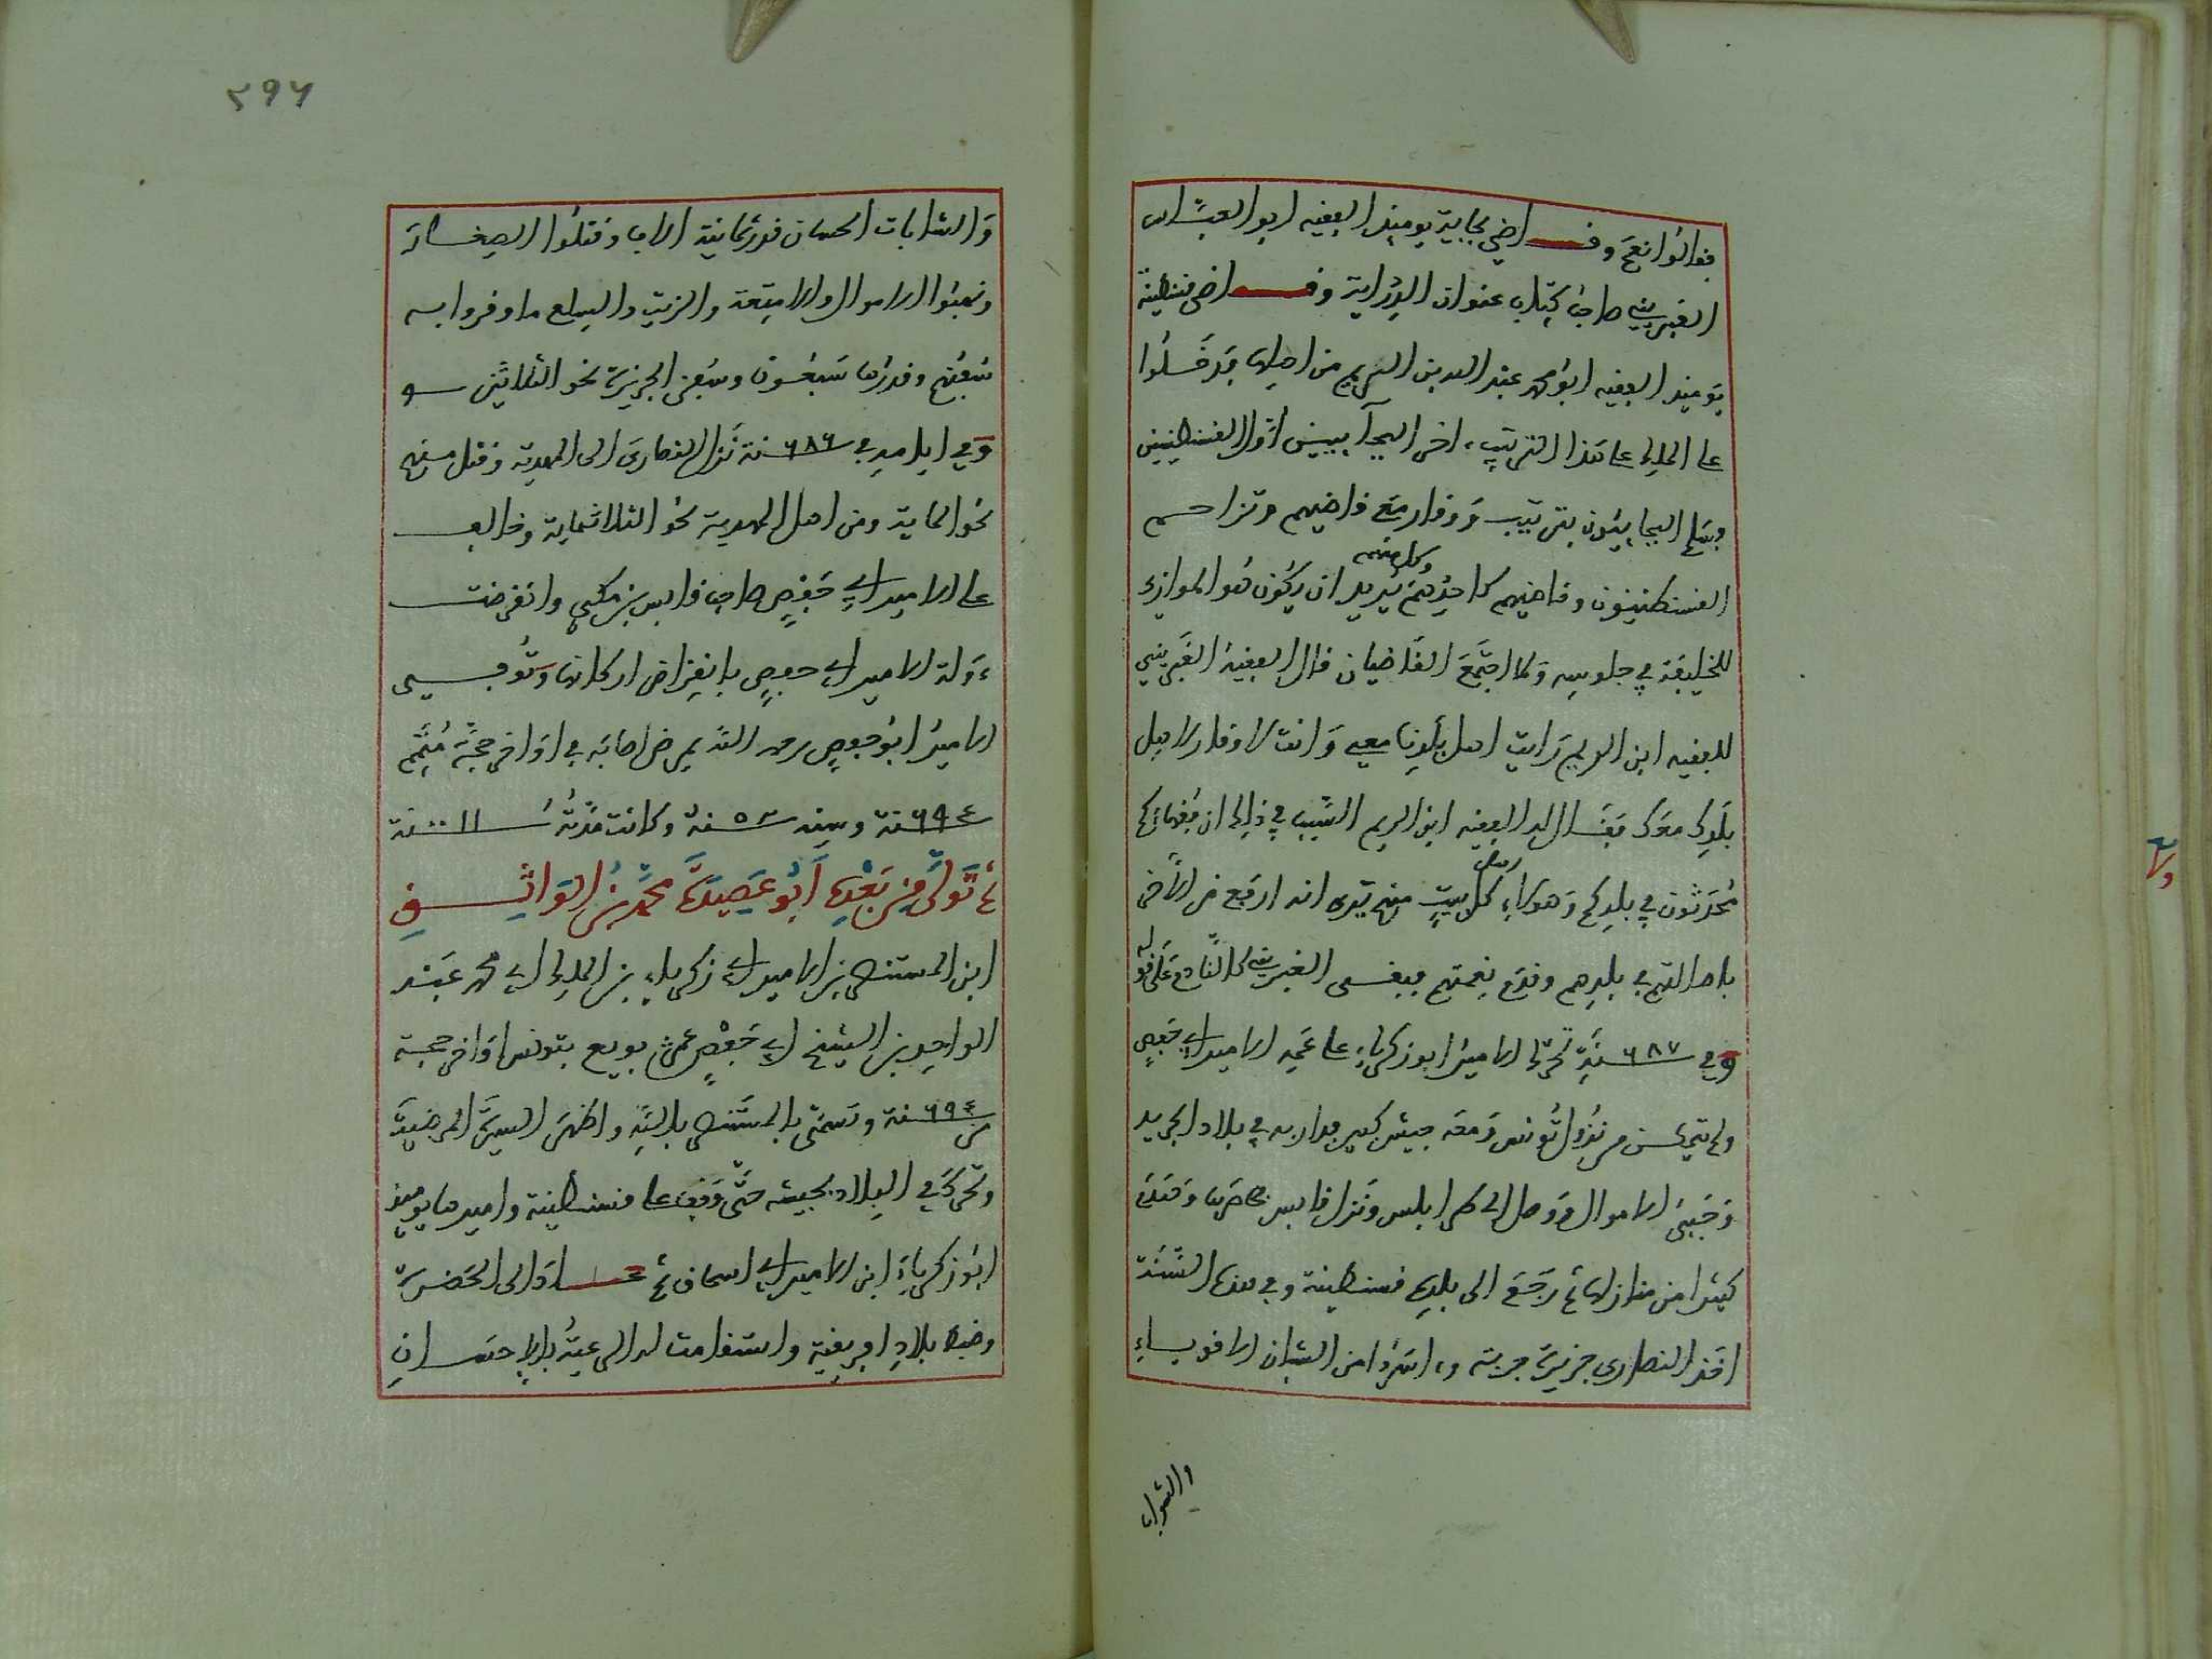 فقالوا نعم وقاضي بجاية يوميذ الفقيه ابو العباس
الغبريني صاحب كتاب عنوان الدراية وقاضي قسنطينة
يوميذ الفقيه ابو محمد عبد الله بن الديم من اهلها فدخلوا
على الملك على هذا الترتيب
وسلم البجاييون بترتيب ووقار مع قاضيهم وتزاحم
القسنطينيون وقاضيهم كاحدهم وكل منهم يريد ان يكون هو الموازي
للخليفة في جلوسه ولما اجتمع القاضيان قال الفقيه الغبريني
للفقيه ابن الديم رايت اهل بلدنا معي وانت لا وقار لاهل
بلدك معك فقال له الفقيه ابن الديم السبب في ذلك ان فقهاءكم
محدثون في بلدكم وهولاء اهل كل بيت منهم يرى انه ارفع من الاخر
باصالتهم في بلدهم وقدم نعمتهم
وفي ٦٨٧ سنة تحرك الامير ابو زكرياء على عمه الامير ابي حفص
ولم يتمكن من نزول تونس ومعه جيش كبير فدار به في بلاد الجريد
وجبى الاموال ووصل الى طرابلس ونزل قابس فحاصرها وهدم
كثيرا من منازلها ثم رجع الى بلده قسنطينة وفي هذه السنة
اخذ النصارى جزيرة جربة واسروا من الشبان الاقوياء
والشابات
٢٩٦
والشابات الحسان قدر ثمانية الاف وقتلوا الصغار
ونهبوا الاموال والامتعة والزيت والسلع ما اوقروا به
سفنهم وقدرها سبعون وسفن الجزيرة نحو الثلاثين
وفي ايامه في ٦٨٦ سنة نزل النصارى الى المهدية وقتل منهم
نحو الماية ومن اهل المهدية نحو الثلاثماية وخالف
على الامير ابي حفص صاحب قابس بن مكي وانقرضت
دولة الامير ابي حفص بانقراض اركانها وتوفي
الامير ابو حفص رحمه الله بمرض اصابه في اواخر حجة متمم
٦٩٤ سنة وسنه ٥٣ سنة وكانت مدته ١١ سنة
ثم تولى من بعده ابو عصيدة محمد بن الواثق
ابن المستنصر بن الامير ابي زكرياء بن الملك ابي محمد عبد
الواحد بن الشيخ ابي حفص عمر بويع بتونس اواخر حجة
٦٩٤ سنة وتسمى بالمستنصر بالله واظهر السيرة المرضية
وتحرك في البلاد بجيشه حتى وقف على قسنطينة واميرها يوميذ
ابو زكرياء ابن الامير ابي اسحاق ثم عاد الى الحضرة
وضبط بلاد افريقية واستقامت له الرعية بالاحسان